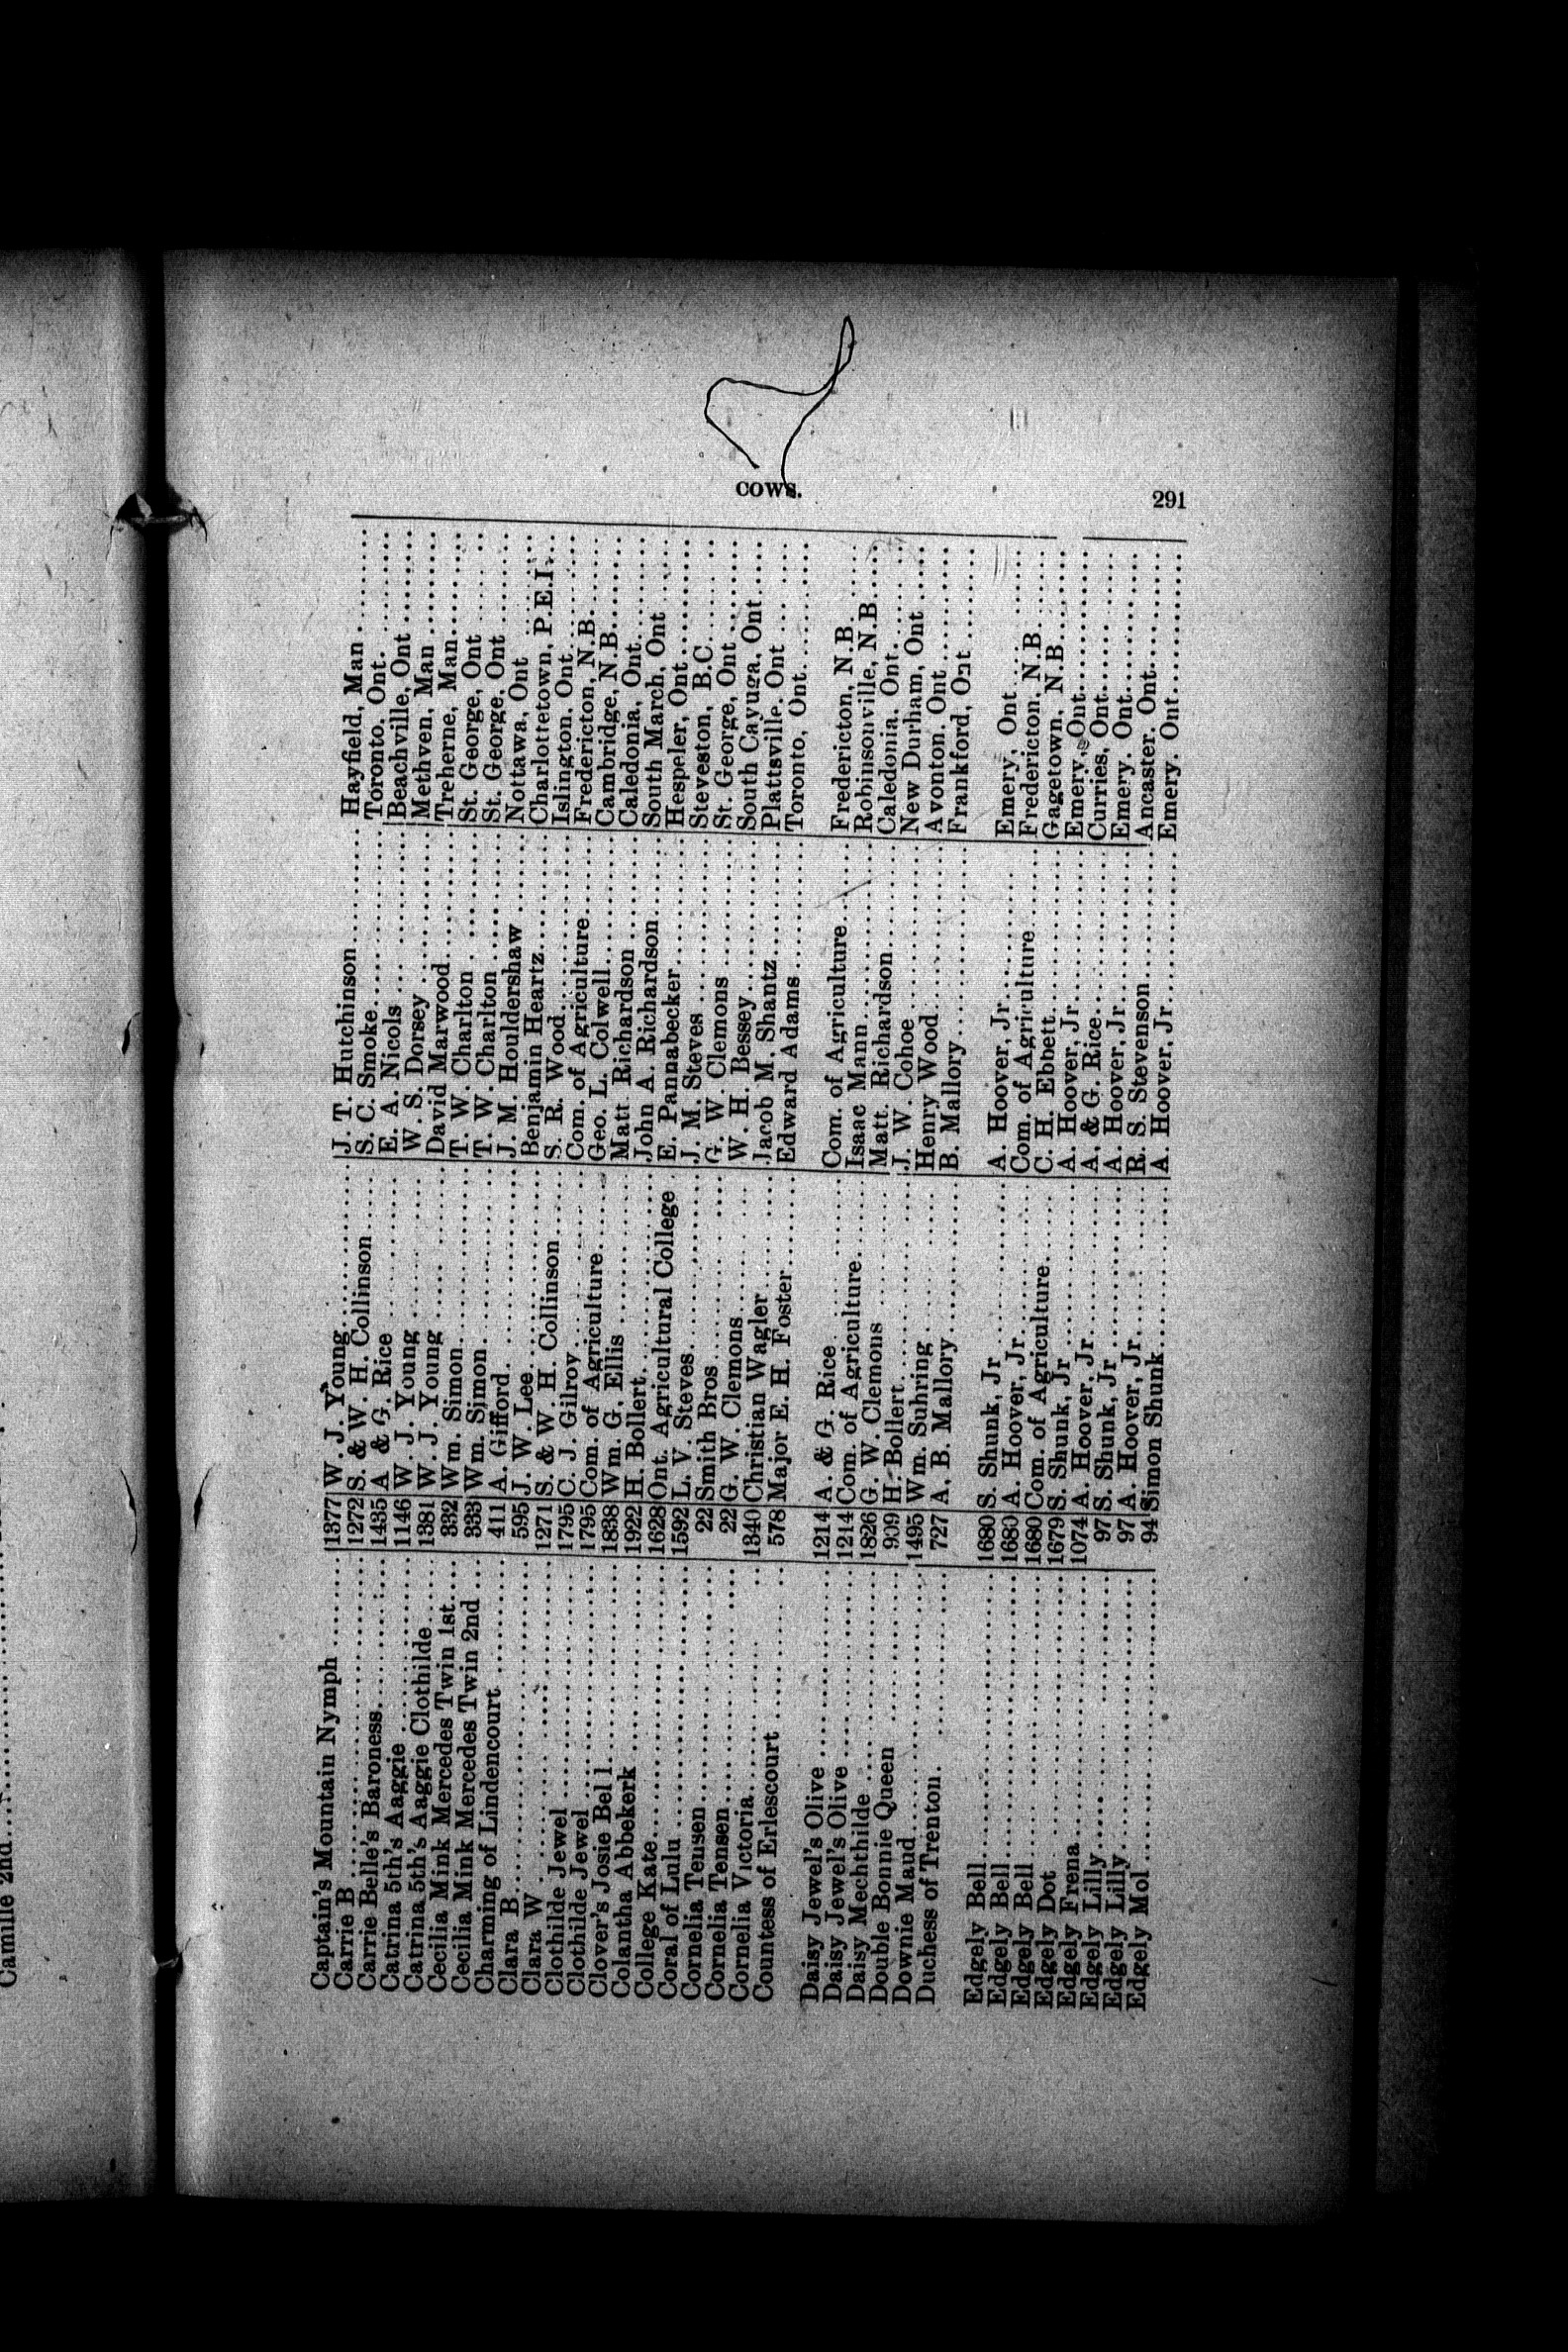 COWS.
291
Captain's Mountain Nymph ........ 1377 W. J. Young ........ J. T. Hutchinson ........ Hayfield, Man ........
Carrie B ........ 1272 S. & W. H. Collinson ........ S. C. Smoke ........ Toronto. Ont ........
Carrie Belle's Baroness ........ 1435 A & G. Rice ........ E. A. Nicols ........ Beachville, Ont ........
Catrina 5th's Aaggie ........ 1146 W. J. Young ........ W. S. Dorsey ........ Methven, Man ........
Catrina 5th's Aaggie Clothilde ........ 1381 W. J. Young ........ David Marwood ........ Treherne, Man ........
Cecilia Mink Mercedes Twin 1st ........ 332 Wm. Simon ........ T. W. Charlton ........ St. George, Ont ........
Cecilia Mink Mercedes Twin 2nd ........ 333 Wm. Simon ........ T. W. Charlton ........ St. George, Ont ........
Charming of Lindencourt ........ 411 A. Gifford ........ J. M. Houldershaw ........ Nottawa, Ont ........
Clara B ........ 595 J. W. Lee ........ Benjamin Heartz ........ Charlottetown, P.E.I. ........
Clara W ........ 1271 S. & W. H. Collinson ........ S. R. Wood ........ Islington, Ont ........
Clothilde Jewel ........ 1795 C. J. Gilroy ........ Com. of Agriculture ........ Fredericton, N.B. ........
Clothilde Jewel ........ 1795 Com. of Agriculture ........ Geo. L. Colwell ........ Cambridge, N.B. ........
Clover's Josie Bel 1 ........ 1838 Wm. G. Ellis ........ Matt. Richardson ........ Caledonia, Ont ........
Colantha Abbekerk ........ 1922 H. Bollert ........ John A. Richardson ........ South March, Ont ........
College Kate ........ 1628 Ont. Agricultural College ........ E. Pannabecker ........ Hespeler, Ont ........
Coral of Lulu ........ 1592 L. V. Steves ........ J. M. Steves ........ Steveston, B.C. ........
Cornelia Tensen ........ 22 Smith Bros ........ G. W. Clemons ........ St. George, Ont ........
Cornelia Tensen ........ 22 G. W. Clemons ........ W. H. Bessey ........ South Cayuga, Ont ........
Cornelia Victoria ........ 1340 Christian Wagler ........ Jacob M. Shantz ........ Plattsville. Ont ........
Countess of Erlescourt ........ 578 Major E. H. Foster ........ Edward Adams ........ Toronto, Ont ........
Daisy Jewel's Olive ........ 1214 A. & G. Rice ........ Com. of Agriculture ........ Fredericton, N.B. ........
Daisy Jewel's Olive ........ 1214 Com. of Agriculture ........ Isaac Mann ........ Robinsonville, N.B. ........
Daisy Mechthilde ........ 1826 G. W. Clemons ........ Matt. Richardson ........ Caledonia, Ont ........
Double Bonnie Queen ........ 909 H. Bollert ........ J. W. Cohoe ........ New Durham, Ont ........
Downie Maud ........ 1495 Wm. Suhring ........ Henry Wood ........ Avonton. Ont ........
Duchess of Trenton ........ 727 A. B. Mallory ........ B. Mallory ........ Frankford, Ont ........
Edgely Bell ........ 1680 S. Shunk, Jr ........ A. Hoover, Jr ........ Emery, Ont ........
Edgely Bell ........ 1680 A. Hoover, Jr ........ Com. of Agriculture ........ Fredericton, N.B. ........
Edgely Bell ........ 1680 Com. of Agriculture ........ C. H. Ebbett ........ Gagetown, N.B. ........
Edgely Dot ........ 1679 S. Shunk, Jr ........ A. Hoover, Jr ........ Emery, Ont ........
Edgely Frena ........ 1074 A. Hoover, Jr ........ A. & G. Rice ........ Curries, Ont ........
Edgely Lilly ........ 97 S. Shunk, Jr ........ A. Hoover, Jr ........ Emery. Ont ........
Edgely Lilly ........ 97 A. Hoover, Jr ........ R. S. Stevenson ........ Ancaster. Ont ........
Edgely Mol ........ 94 Simon Shunk ........ A. Hoover, Jr ........ Emery. Ont ........
Camille 2nd ........